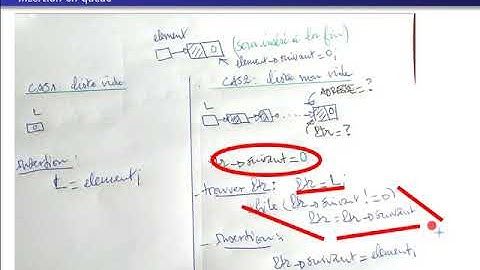 Insertion en queue
element
(sera inséré à la fin)
element→suivant = 0;
CAS1: liste vide
CAS2: liste non vide
ADRESSE = ?
L
L
0
0
ptr = ?
ptr→suivant = 0
insertion:
L = element;
- trouver ptr: ptr = L;
while (ptr→suivant != 0)
ptr = ptr→suivant
- insertion:
ptr→suivant = element;